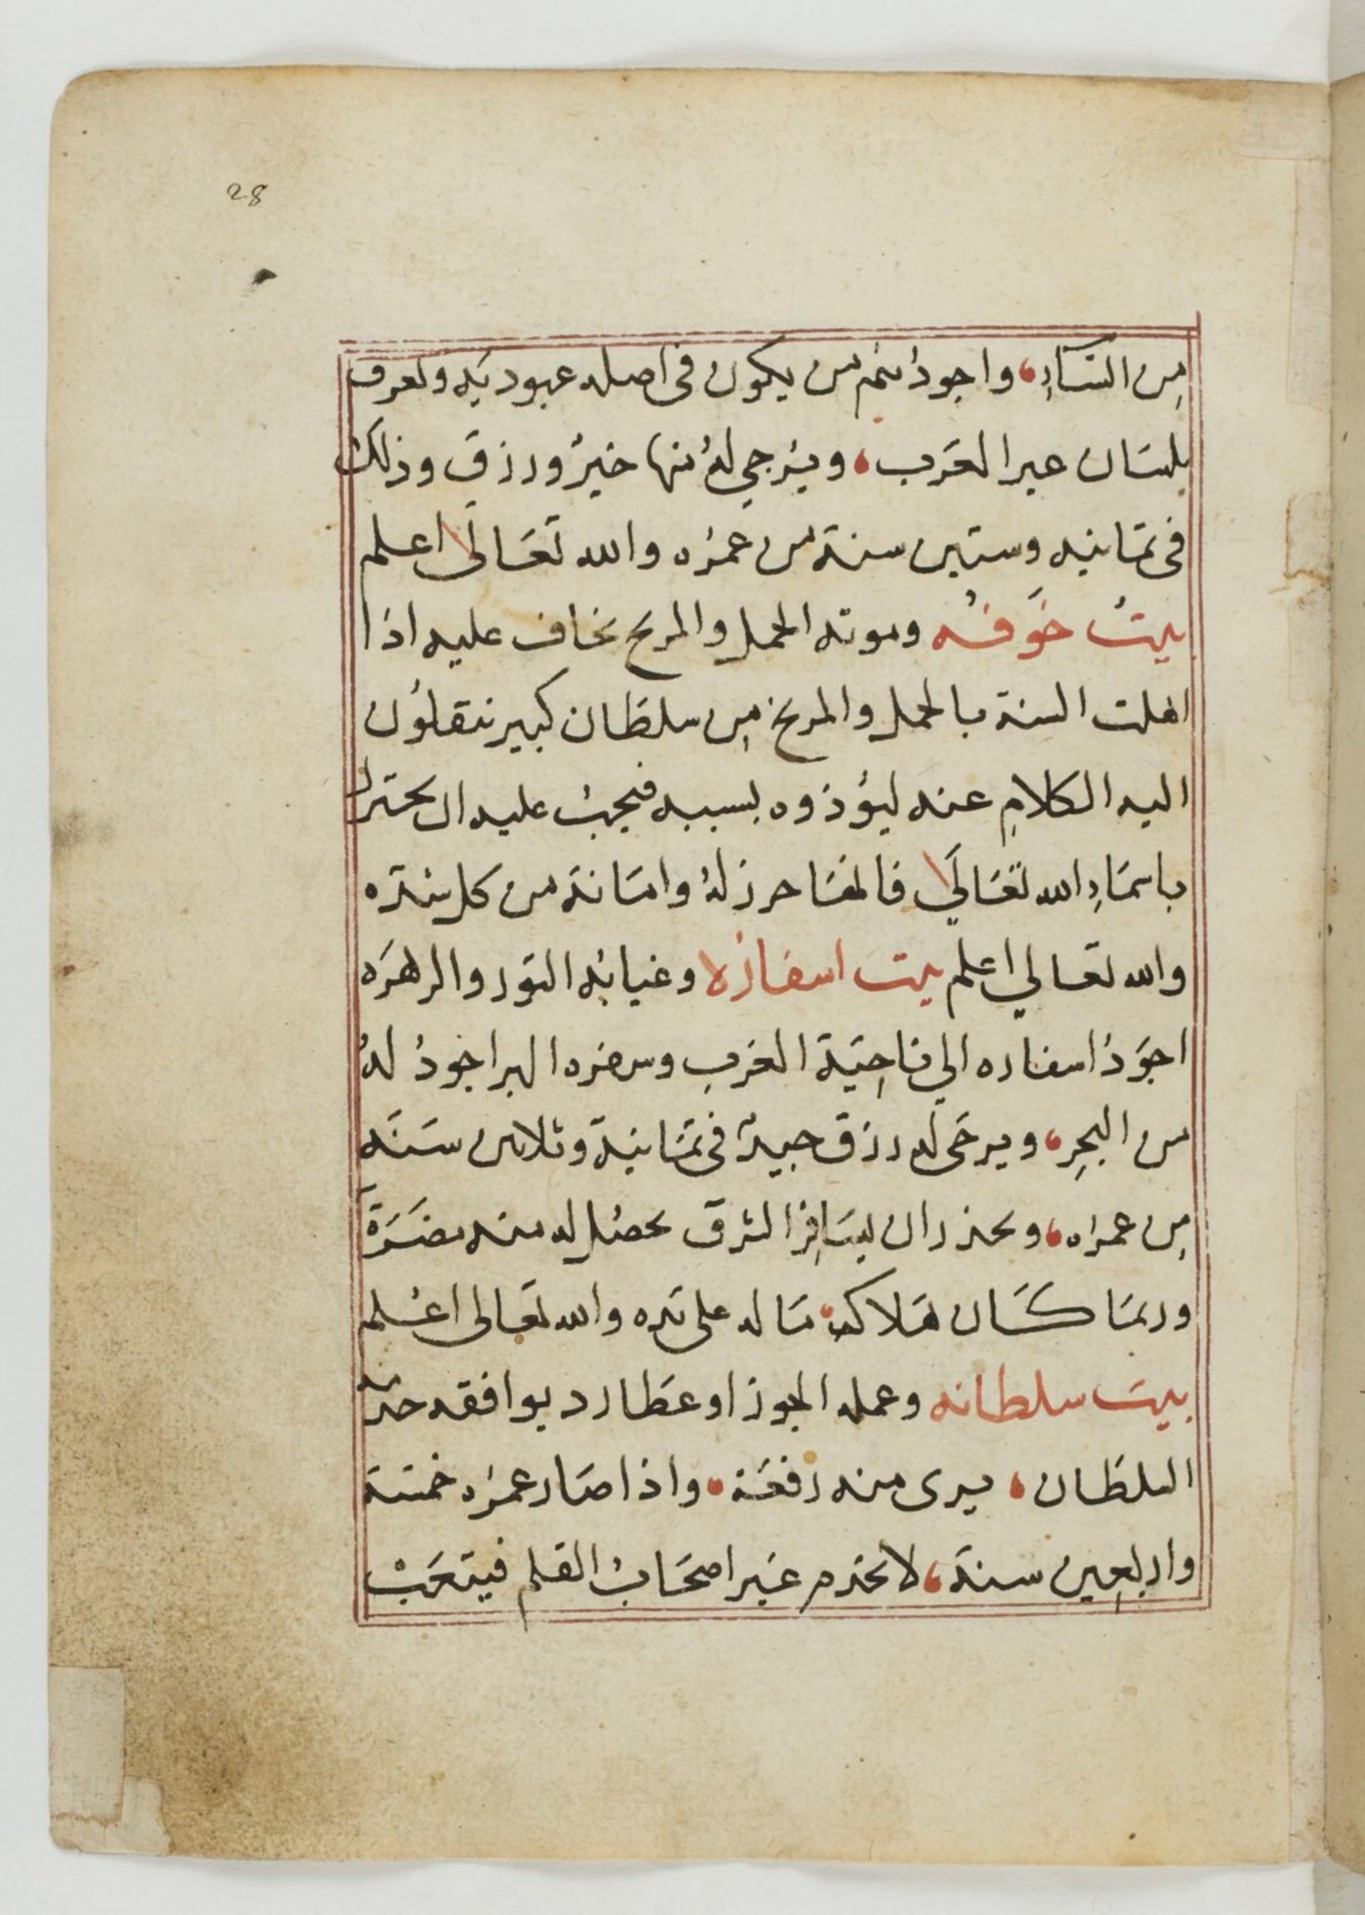 28
مِن النسَاءِ، واجودُ منهم من يكون فى اصله عبوديَه ولعرف
بلسَان غير العَرب، ويُرجي لهُ منها خيرٌ ورزق وذلك
فى ثمانيه وستين سنة من عمرُه والله تعَالى اعلم
بيتُ خَوفُه وموته الحمل والمريخ يخاف عليه اذا
اهلت السنة بالحمل والمريخ مِن سلطَان كبير ينقلوُن
اليه الكلامِ عنه ليؤذوه بسببه فيجبُ عليه ان يحترز
باسمَاءِ الله تعَالَي فانهَا حرز لهُ وامَانة من كل شده
والله تعالي اعلم بيت اسفارُه وغيابهُ الثور والزهرَه
اجوَدُ اسفاره الي ناحِيَة الغرب وسفره البر اجودُ لهُ
من البحرِ، ويرجَى له رزق جيدٌ فى ثمَانيَة وثلاثين سَنَه
مِن عمره، ويحذر ان يسَافِرُ الشرق يحصُل له منه مضَرَةَ
وربمَا كَان هَلاكه، مَا له على يده والله تعَالى اعْلم
بيت سلطانه وعمله الجوزا وعطَارد يوافقه خدمة
السلطَان، يرى منه رفعَة، واذا صَار عمرُه خمسَة
واربعِين سنة، لا يخدم غير اصحَابُ القلم فيتعَبْ